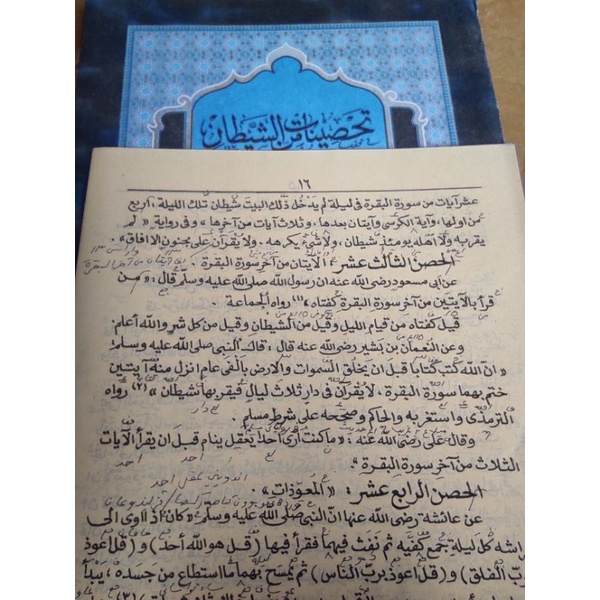 تحصينات من الشيطان
١٦
عشر آيات من سورة البقرة فى ليلة لم يدخل ذلك البيت شيطان تلك الليلة، اربع
من اولها، وآية الكرسى وآيتان بعدها، وثلاث آيات من آخرها» وفى رواية «لم
يقربه ولا أهله يومئذ شيطان، ولا شئ يكرهه، ولا يقرآن على مجنون الا افاق».
الحصن الثالث عشر: الآيتان من آخر سورة البقرة.
عن أبى مسعود رضى الله عنه ان رسول الله صلى الله عليه وسلم قال: «من
قرأ بالآيتين من آخر سورة البقرة كفتاه» (١) رواه الجماعة
قيل كفتاه من قيام الليل وقيل من الشيطان وقيل من كل شر والله أعلم.
وعن النعمان بن بشير رضى الله عنه قال: قال النبى صلى الله عليه وسلم:
«ان الله كتب كتابا قبل ان يخلق السموات والارض بألفى عام انزل منه آيتين
ختم بهما سورة البقرة، لا يقرآن فى دار ثلاث ليال فيقربها شيطان» (٢) رواه
الترمذى واستغربه والحاكم وصححه على شرط مسلم.
وقال على رضى الله عنه: «ما كنت أرى أحدا يعقل ينام قبل ان يقرأ الآيات
الثلاث من آخر سورة البقرة».
الحصن الرابع عشر: «المعوذات».
عن عائشة رضى الله عنها ان النبى صلى الله عليه وسلم «كان اذا اوى الى
اشه كل ليلة جمع كفيه ثم نفث فيهما فقرأ فيها (قل هو الله أحد) و (قل أعوذ
ب الفلق) و (قل اعوذ برب الناس) ثم يمسح بهما ما استطاع من جسده، يبدأ